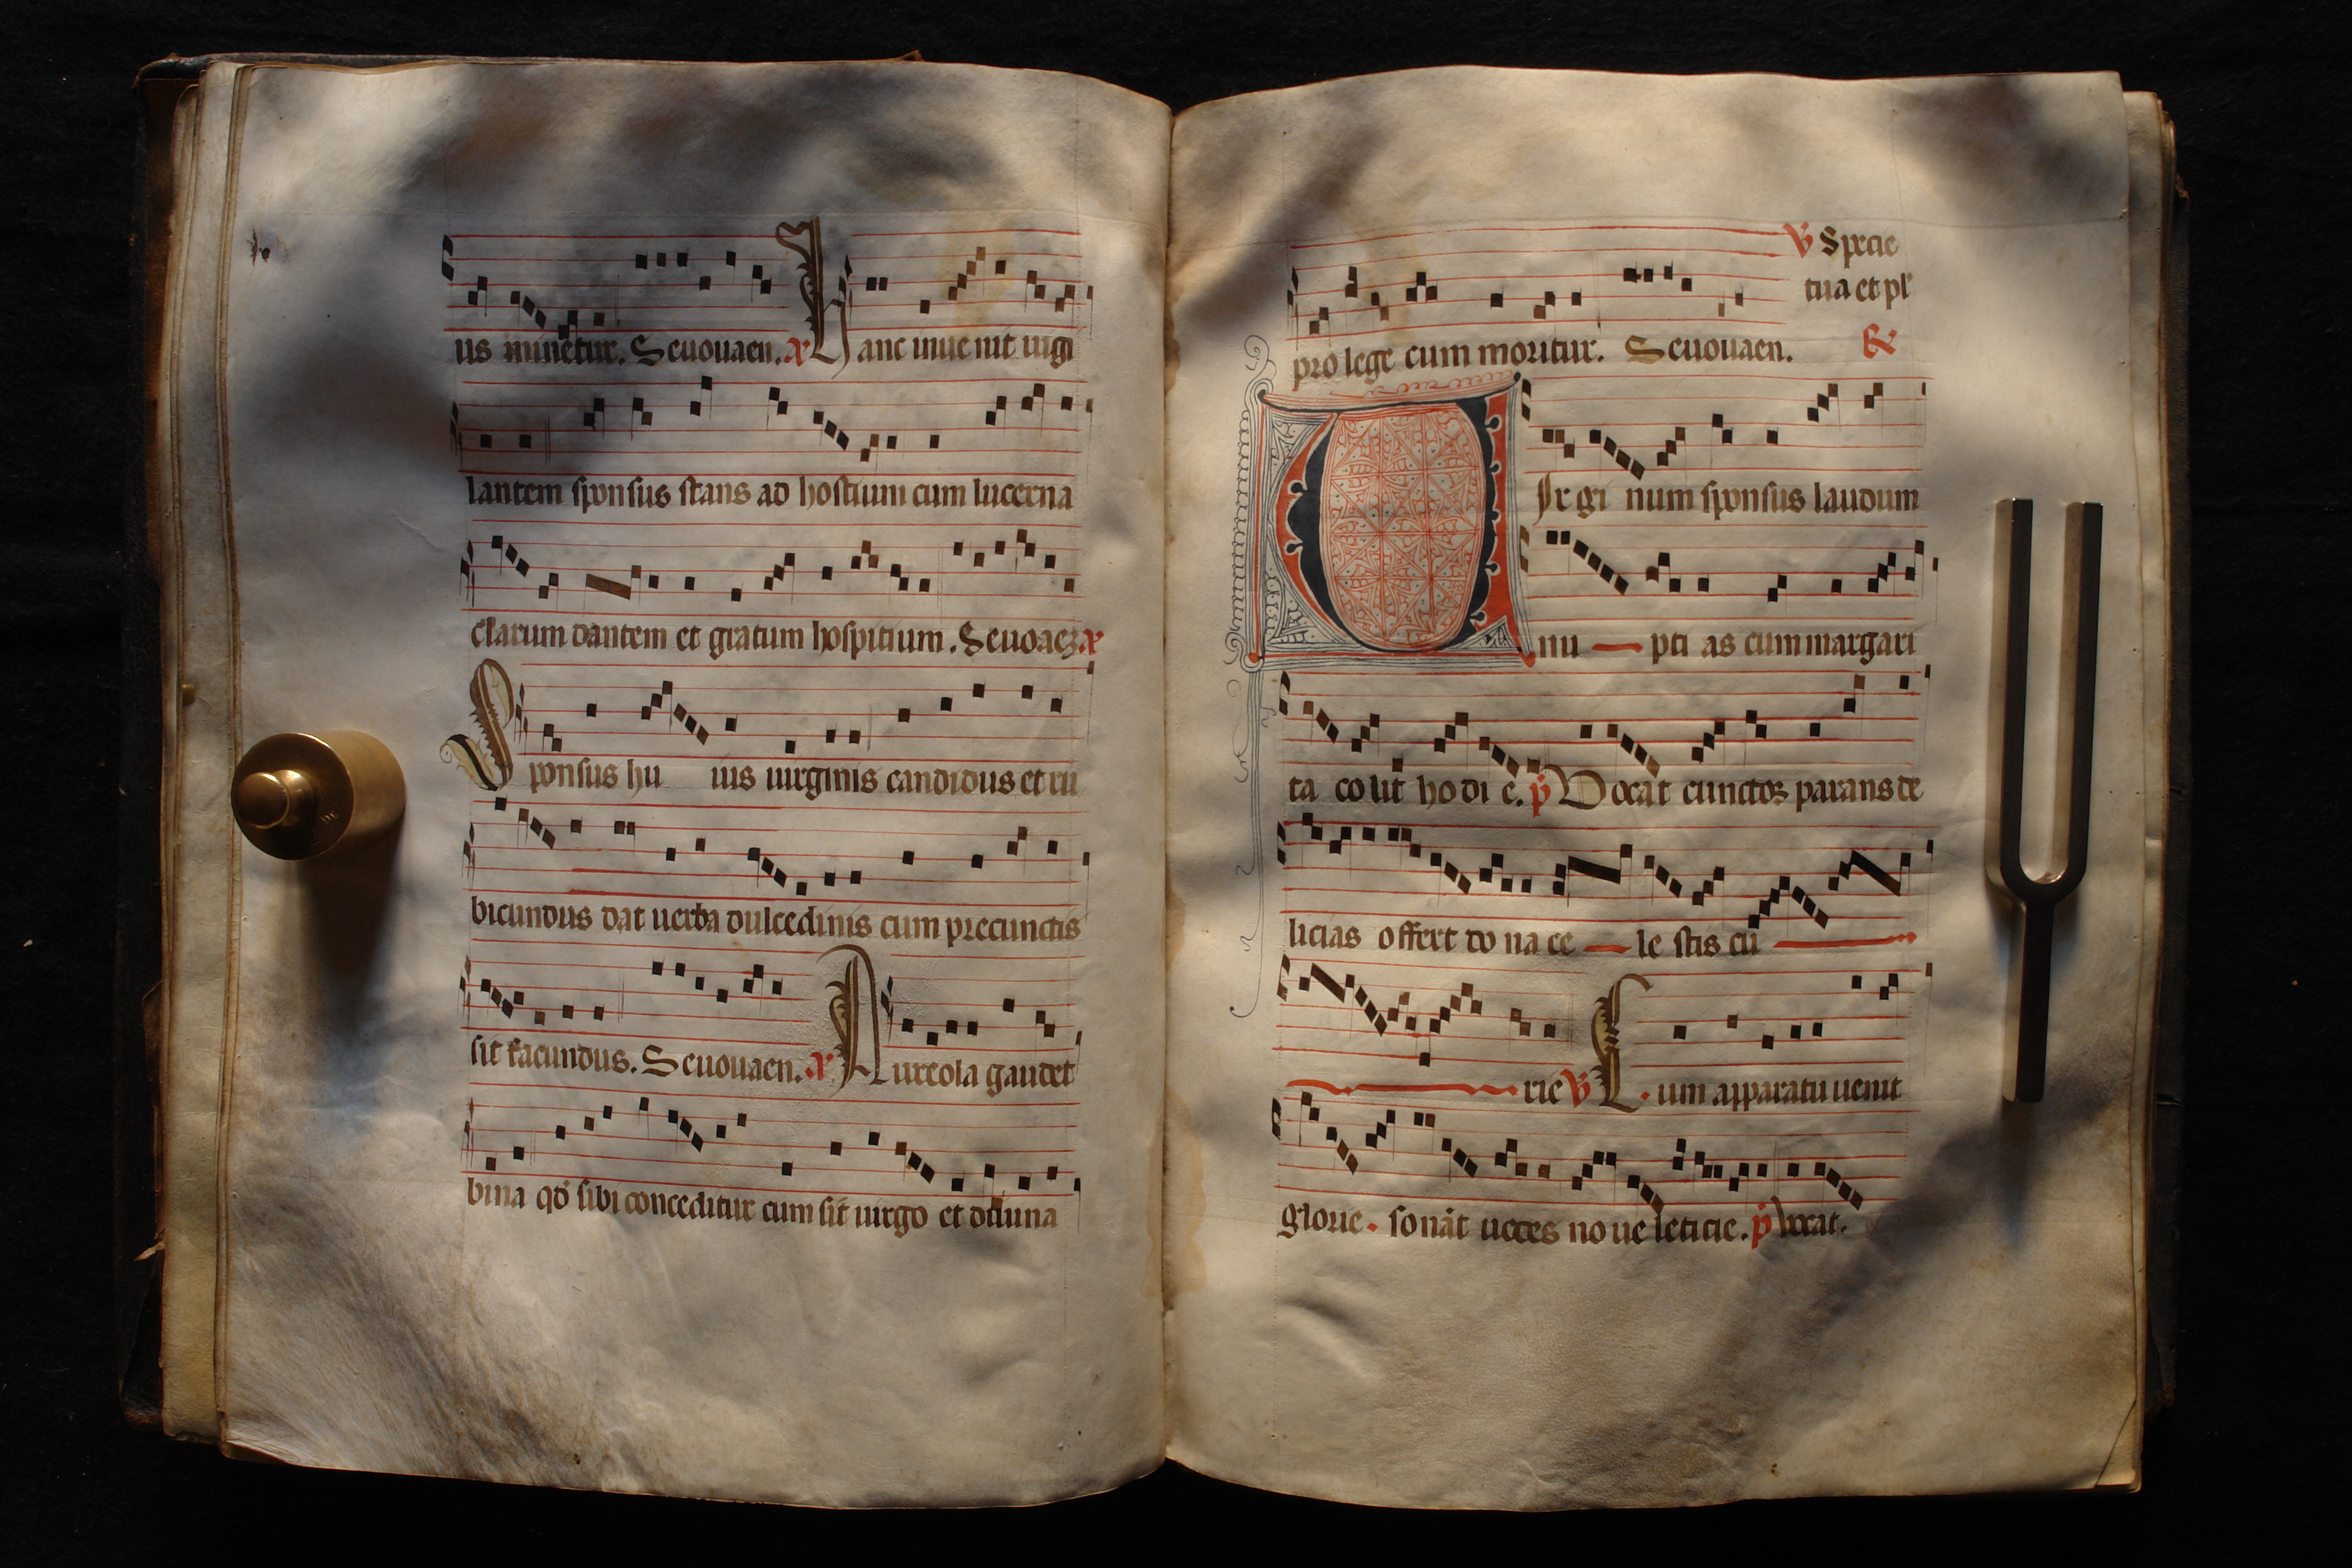 us munetur. Seuouaen. a Hanc inue nit uigi
lantem sponsus stans ad hostium cum lucerna
clarum dantem et gratum hospitium. Seuoaez a
Sponsus hu ius uirginis candidus et ru
bicundus dat uerba dulcedinis cum precunctis
sit facundus. Seuouaen. a Aureola gaudet
bina qđ sibi conceditur cum sit uirgo et
V Specie
tua et pl'
pro lege cum moritur. Seuouaen. R
Virgi num sponsus laudum
nu — pti as cum margari
ta colit ho di e. p Vocat cunctos parans de
licias offert do na ce — le stis cu —
— rie V Cum apparatu uenit
glorie. sonāt uoces no ue leticie. p Vocat.